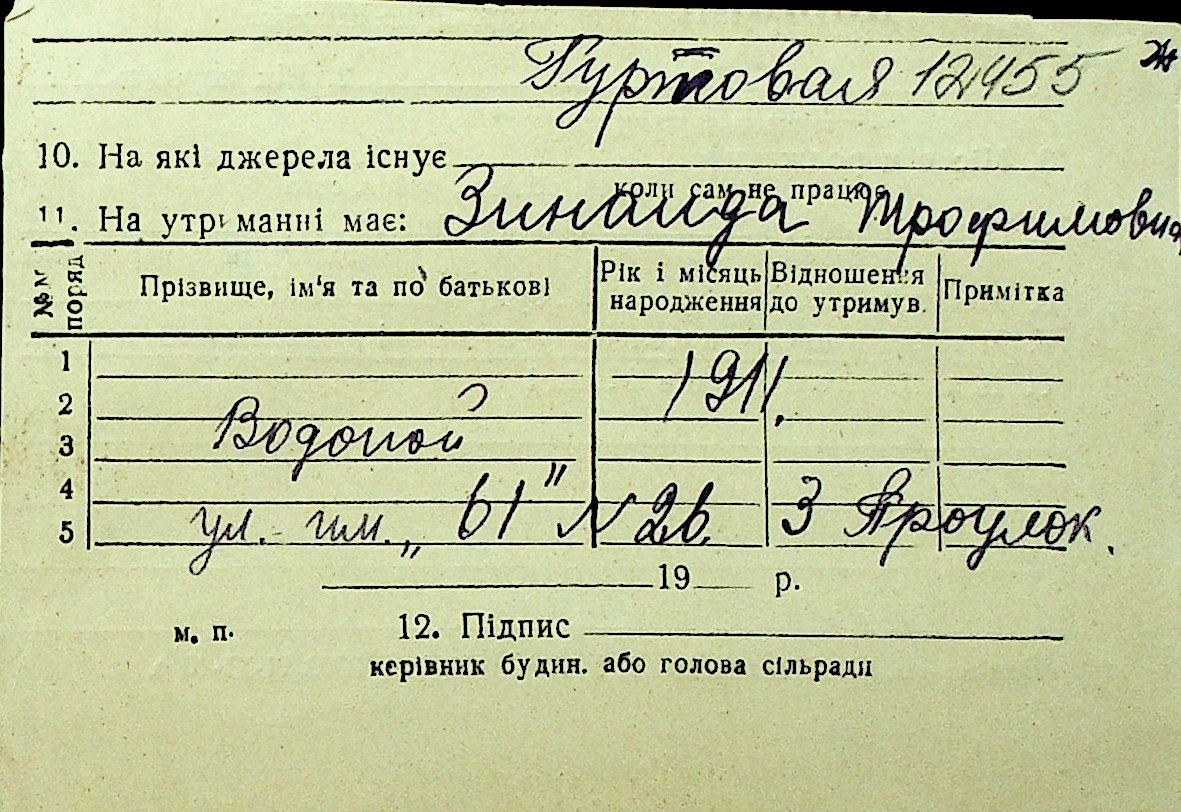 Гуртовая 12455 Ж
10. На які джерела існує
коли сам не працює
11. На утриманні має: Зинаида Трофимовна
№№ поряд
Прізвище, ім'я та по батькові
Рік і місяць народження
Відношення до утримув.
Примітка
1
1911.
2
Водопой
3
4
ул. им. „61" № 26. 3 Проулок.
5
19 р.
м. п. 12. Підпис
керівник будин. або голова сільради